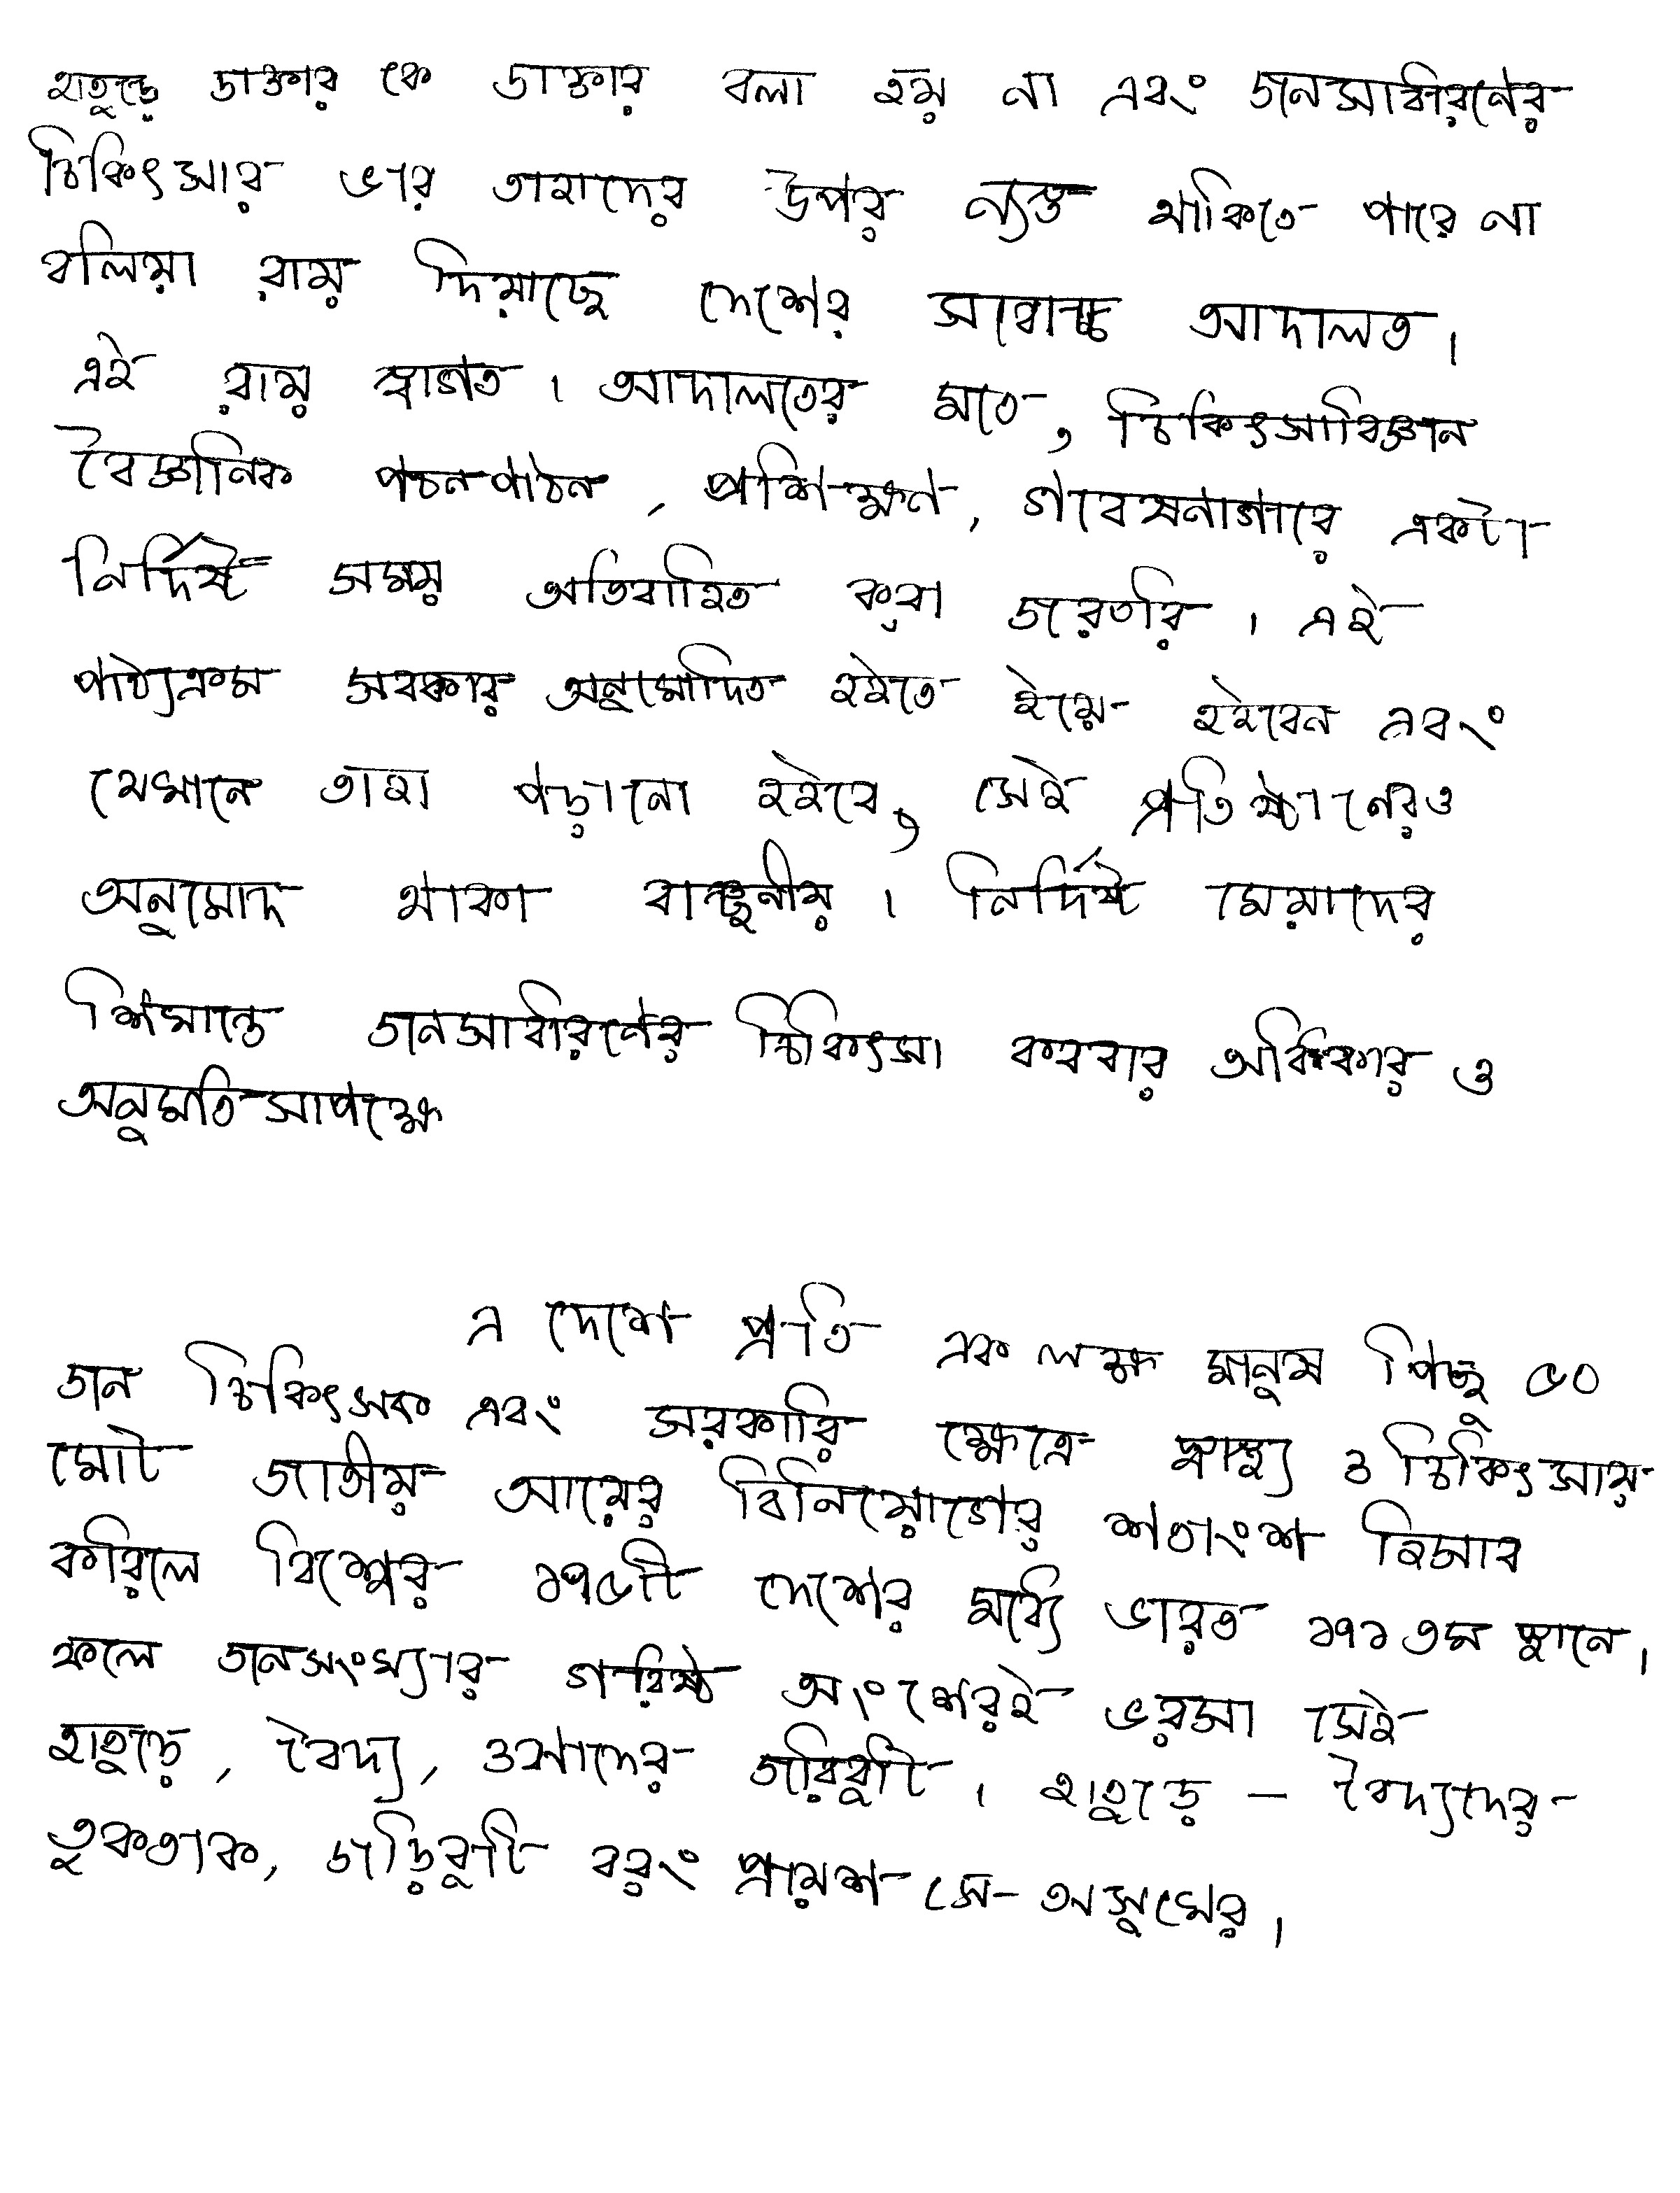 হাতুড়ে ডাক্তার কে ডাক্তার বলা হয় না এবং জনসাধারণের
চিকিৎসার ভার তাহাদের উপর ন্যস্ত থাকিতে পারে না
বলিয়া রায় দিয়াছে দেশের সর্বোচ্চ আদালত।
এই রায় স্বাগত। আদালতের মতে, চিকিৎসাবিজ্ঞান
বৈজ্ঞানিক পঠনপাঠন, প্রশিক্ষণ, গবেষনাগারে একটা
নির্দিষ্ট সময় অতিবাহিত করা জরুরি। এই
পাঠ্যক্রম সরকার অনুমোদিত হইতে হইবেন এবং
যেখানে তাহা পড়ানো হইবে, সেই প্রতিষ্ঠানেরও
অনুমোদ থাকা বাঞ্ছনীয়। নির্দিষ্ট মেয়াদের
শিক্ষান্তে জনসাধারণের চিকিৎসা করবার অধিকার ও
অনুমতিসাপক্ষে
এ দেশে প্রতি এক লক্ষ মানুষ পিছু ৫০
জন চিকিৎসক এবং সরকারি ক্ষেত্রে স্বাস্থ্য ও চিকিৎসায়
মোট জাতীয় আয়ের বিনিয়োগের শতাংশ হিসাব
করিলে বিশ্বের ১৭৫টি দেশের মধ্যে ভারত ১৭১ তম স্থানে।
ফলে জনসংখ্যার গরিষ্ঠ অংশেরই ভরসা সেই
হাতুড়ে, বৈদ্য, ওঝাদের জরিবুটি। হাতুড়ে - বৈদ্যদের
তুকতাক, জড়িবুটি বরং প্রায়শ সে অসুখের।